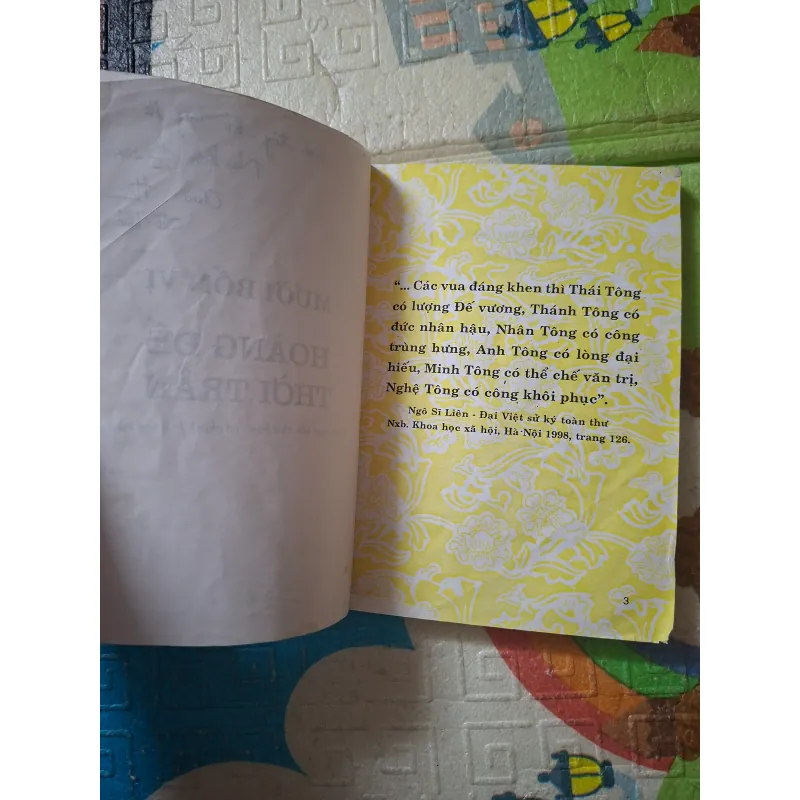 MƯỜI BỐN VỊ
HOÀNG ĐẾ
THỜI TRẦN
“... Các vua đáng khen thì Thái Tông
có lượng Đế vương, Thánh Tông có
đức nhân hậu, Nhân Tông có công
trùng hưng, Anh Tông có lòng đại
hiếu, Minh Tông có thể chế văn trị,
Nghệ Tông có công khôi phục”.
Ngô Sĩ Liên - Đại Việt sử ký toàn thư
Nxb. Khoa học xã hội, Hà Nội 1998, trang 126.
3